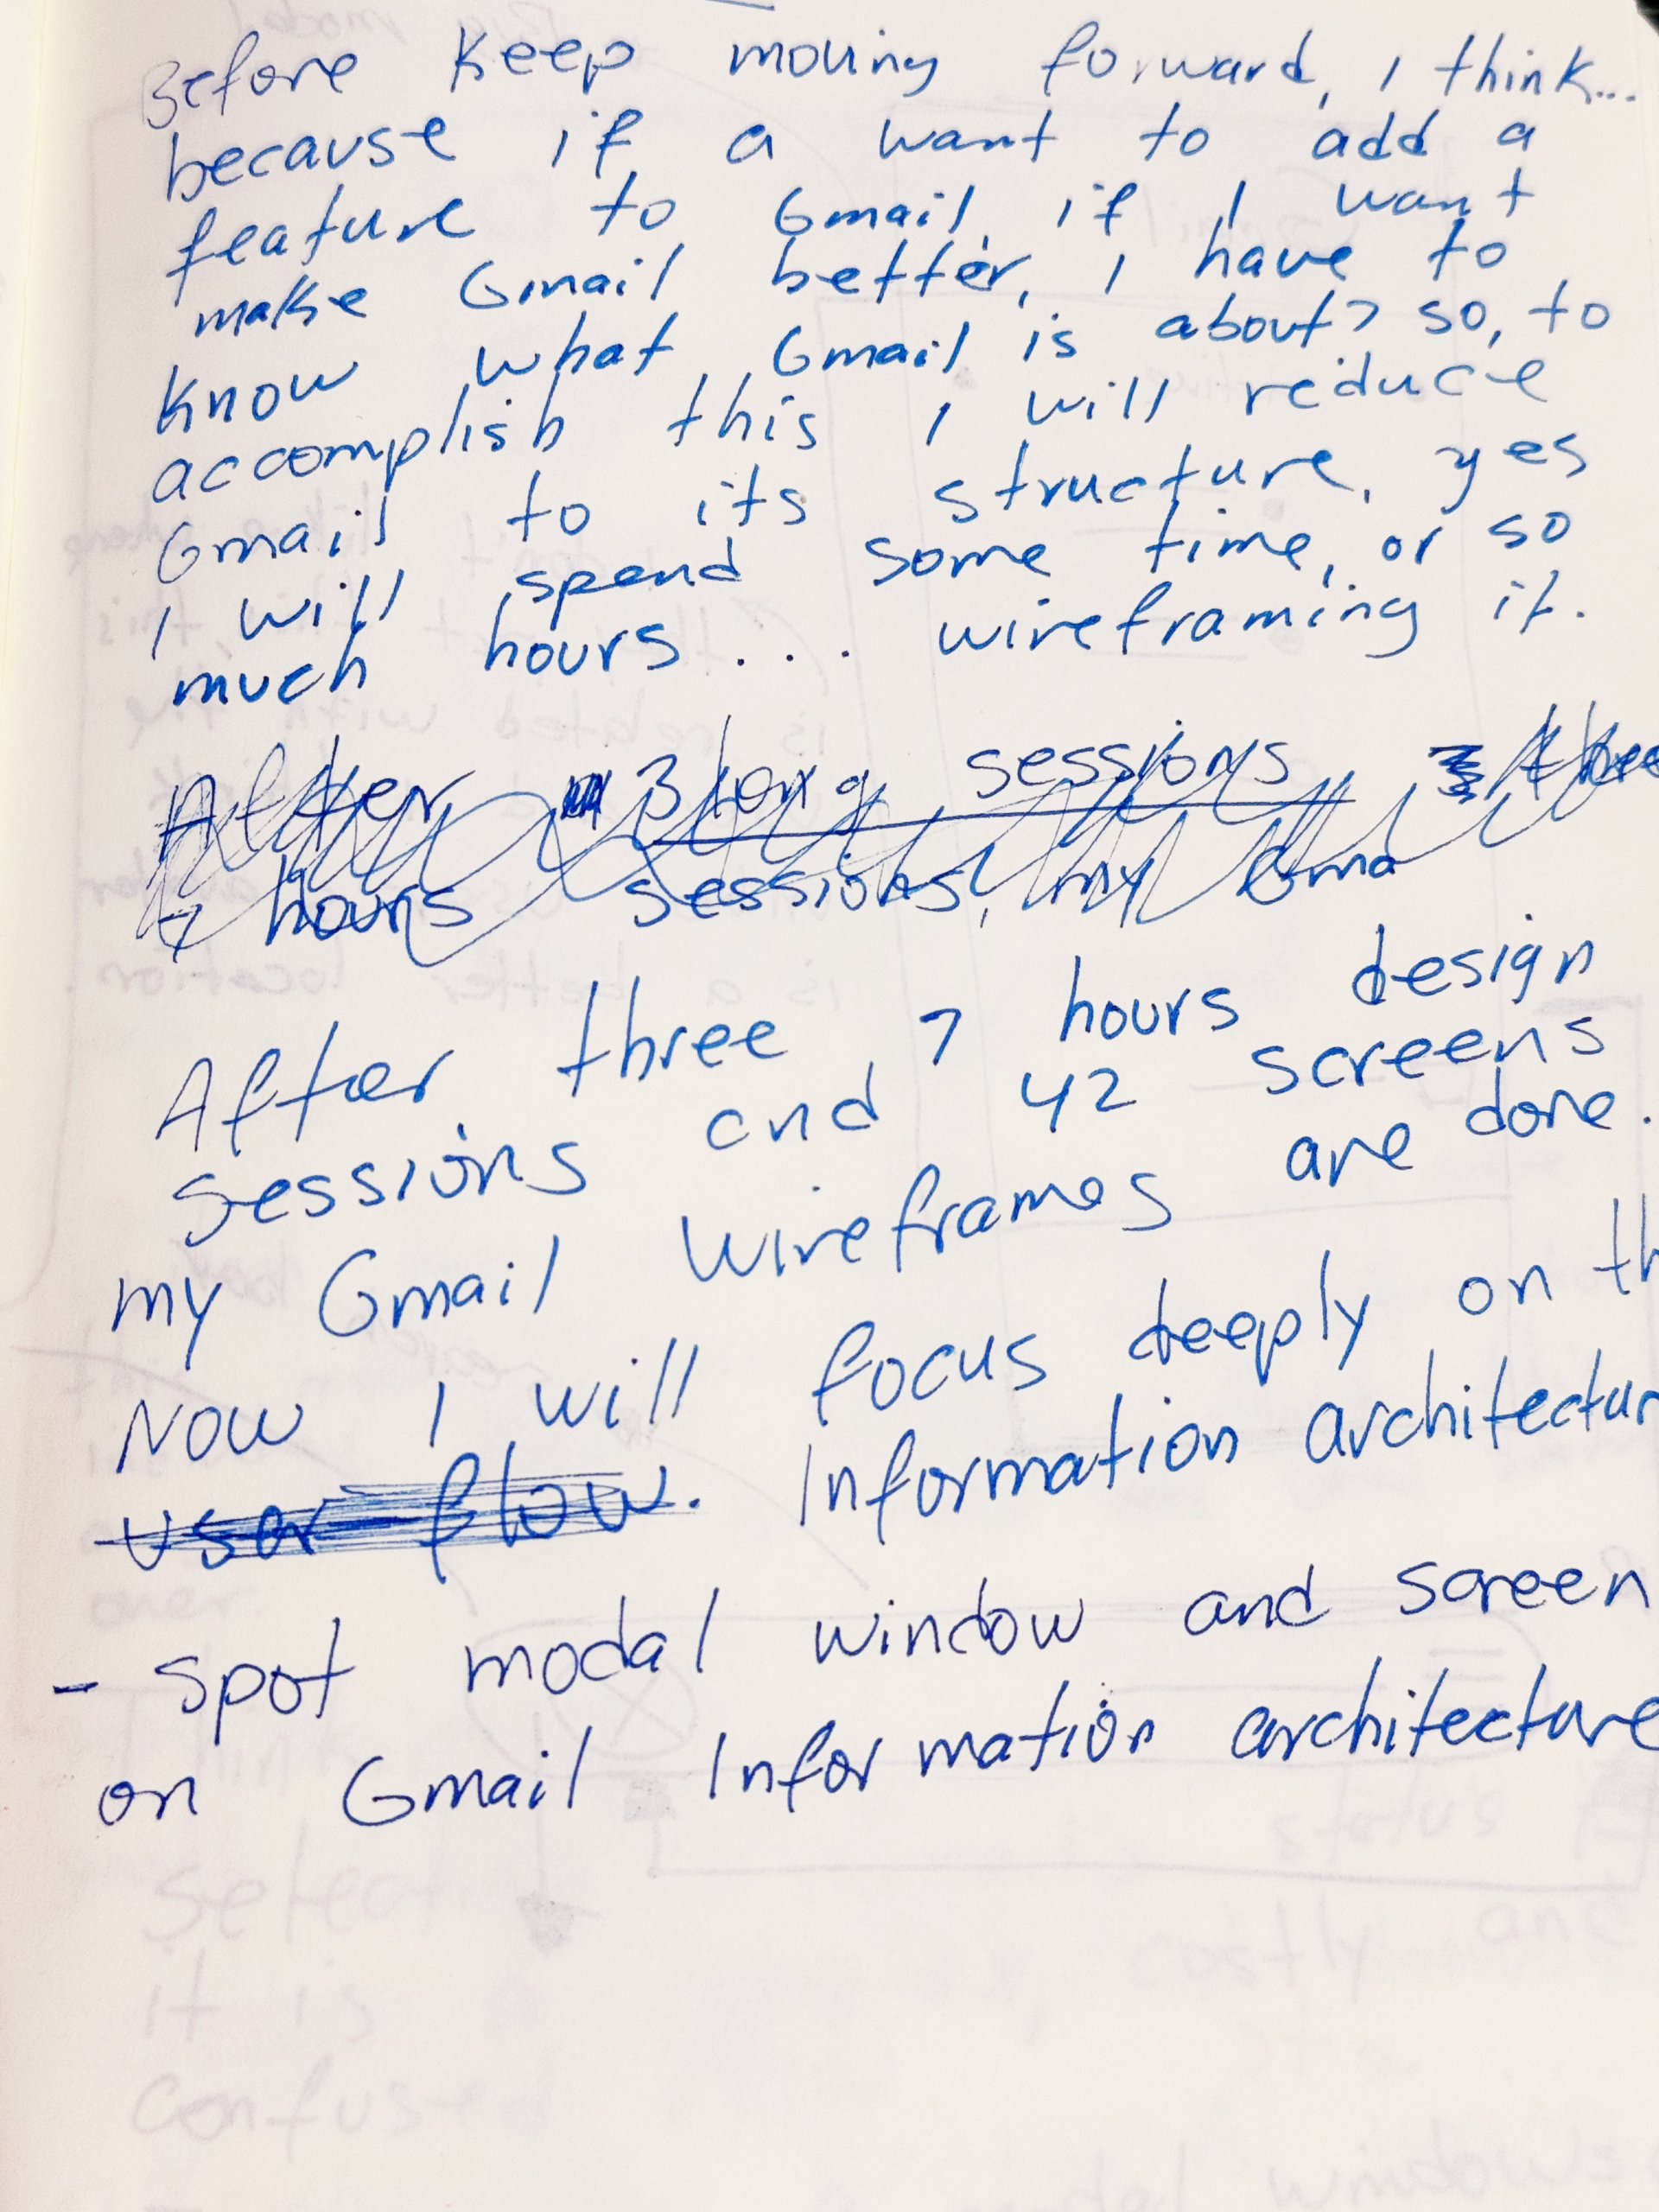 Before keep moving forward, I think...
because if a want to add a
feature to Gmail, if I want
make Gmail better, I have to
know what Gmail is about? so, to
accomplish this I will reduce
Gmail to its structure, yes
I will spend some time, or so
much hours... wireframing it.
After 3 long sessions three
7 hours sessions, my Gma
After three, 7 hours design
sessions and 42 screens
my Gmail wireframes are done.
Now I will focus deeply on th
user flow. Information architectur
- spot modal window and screen
on Gmail Information architecture